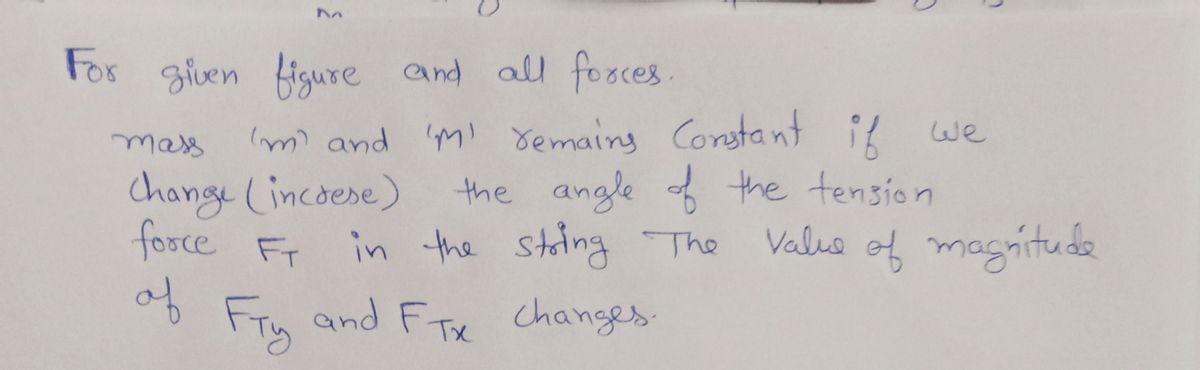 For given figure and all forces.
mass 'm' and 'M' remains Constant if we
Change (increse) the angle of the tension
force FT in the string The Value of magnitude
of FTy and FTx Changes.